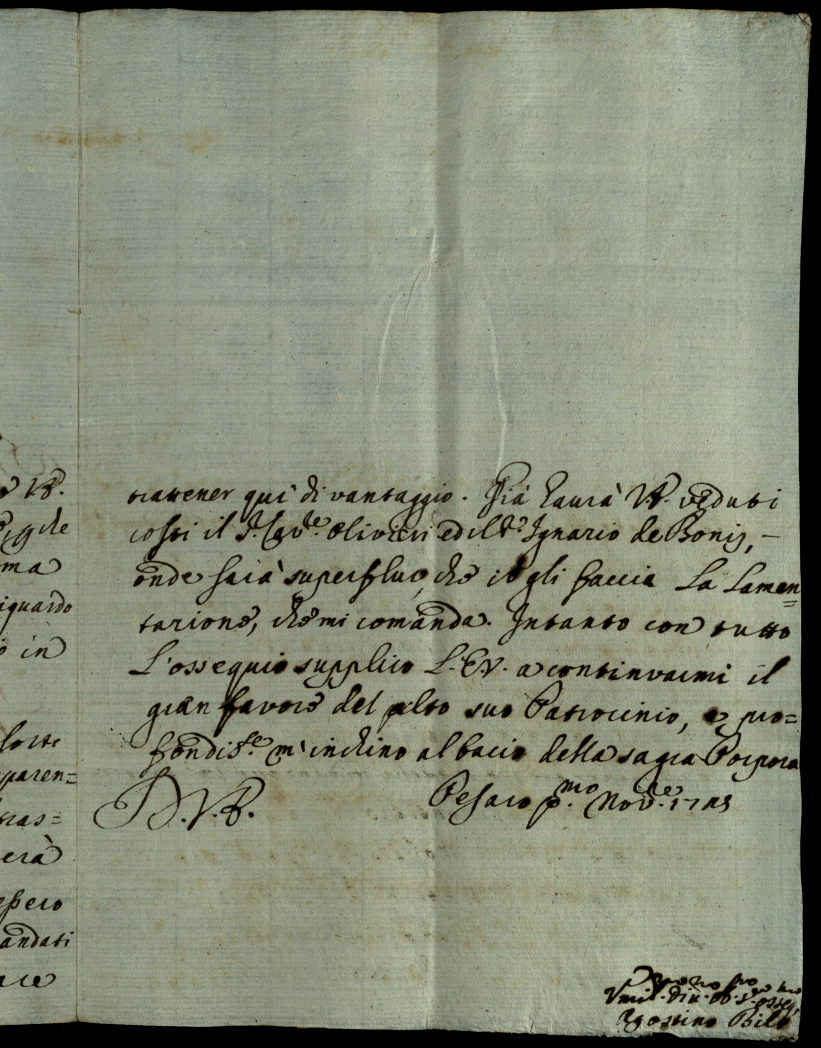 V.E.
che
ma
riguardo
o in
sorte
paren=
tras=
erà
essero
andati
are
trattener quì di vantaggio. Già haurà V.E. veduti
costì il Sr. Cav.re Olivieri ed il Sr. Ignazio de Bonis, –
onde sarà superfluo, che io gli faccia la Lamen=
tazione, che mi comanda. Intanto con tutto
L'ossequio supplico L'E.V. a continuarmi il
gran favore del alto suo Patrocinio, e pro=
fondis.te m'inchino al bacio della sagra Porpora
D.V.E. Pesaro p.mo Nov.re
Vmil.mo Div.mo ob.mo S.re osseq.mo
Agostino